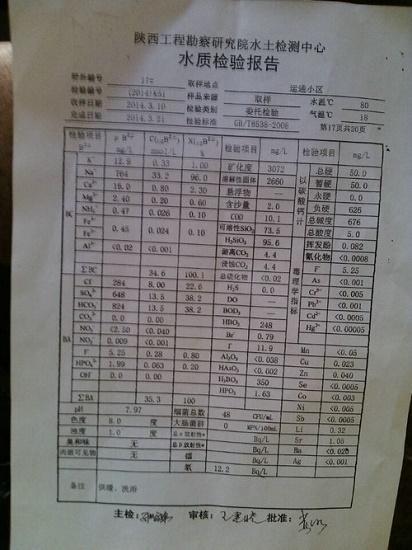 陕西工程勘察研究院水土检测中心
水质检验报告
野外编号 17# 取样地点 运通小区
检验编号 (2014)k51 样品来源 取样 水温℃ 80
收样日期 2014.3.10 检验类别 委托检验 气温℃ 18
完成日期 2014.3.21 检验标准 GB/T8538-2008 第17页共20页
检验项目 mg/L mmol/L 检验项目 mg/L 检验项目 mg/L
K⁺ 12.9 0.33 1.00 矿化度 3072 总硬 50.0
Na⁺ 764 33.2 96.0 溶解性固体 2660 暂硬 50.0
Ca²⁺ 16.0 0.80 2.30 悬浮物 — 永硬 0.0
Mg²⁺ 2.40 0.20 0.60 含沙量 2.0 负硬 626
NH₄⁺ 0.47 0.026 0.10 COD 10.1 总碱度 676
0.45 0.024 0.10 可溶性SiO₂ 73.5 总酸度 5.0
H₂SiO₃ 95.6 挥发酚 0.082
Al³⁺ <0.02 <0.001 游离CO₂ 4.4 氰化物 <0.0008
4.4 F⁻ 5.25
ΣBC 34.6 100.1 总硫化物 <0.02 As <0.001
Cl⁻ 284 8.00 22.6 H₂S 0.0 Cr⁶⁺ <0.005
SO₄²⁻ 648 13.5 38.2 DO — Pb²⁺ <0.001
HCO₃⁻ 824 13.5 38.2 BOD₅ — Cd²⁺ <0.0005
CO₃²⁻ 0.0 0.00 HBO₂ 248 Hg²⁺ <0.00005
NO₃⁻ <2.50 <0.040 Br⁻ 0.79
NO₂⁻ 0.009 <0.001 I⁻ 11.9 Mn <0.05
F⁻ 5.25 0.28 0.80 Al₂O₃ <0.038 Cu 0.023
HPO₄²⁻ 1.99 0.063 0.20 HAsO₂ <0.002 Zn 0.040
OH⁻ 0.0 0.00 H₂BO₃ 350 Se <0.0005
HPO₃ 1.63 Co <0.003
ΣBA 35.3 100 Ni <0.005
pH 7.97 细菌总数 48 CFU/mL Sb <0.0005
色度 8.0 度 大肠菌群 0 MPN/100mL Li 0.32
浊度 1.0 度 总α放射性* Bq/L Sr 1.05
臭和味 无 总β放射性* Bq/L Ba <0.020
肉眼可见物 无 镭 Bq/L Ag <0.001
氡 12.2 Bq/L
备注 供暖、洗浴
主检: 审核: 批准: